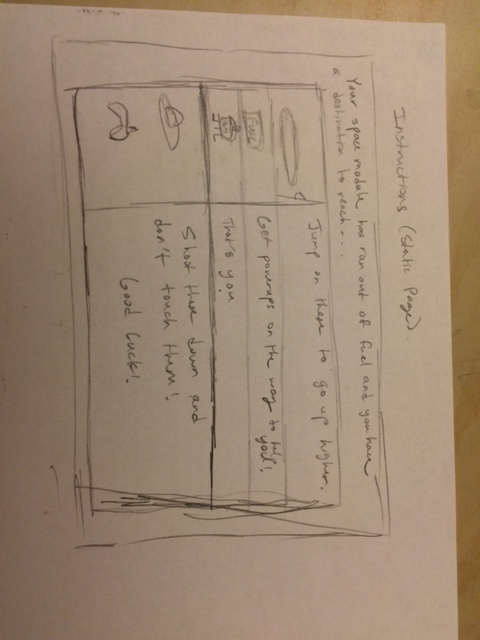 Instructions (Static Page).
Your space module has ran out of fuel and you have
a destination to reach...
Jump on these to go up higher.
Get powerups on the way to help
you!
That's you
Shoot these down and
don't touch them!
Good Luck!